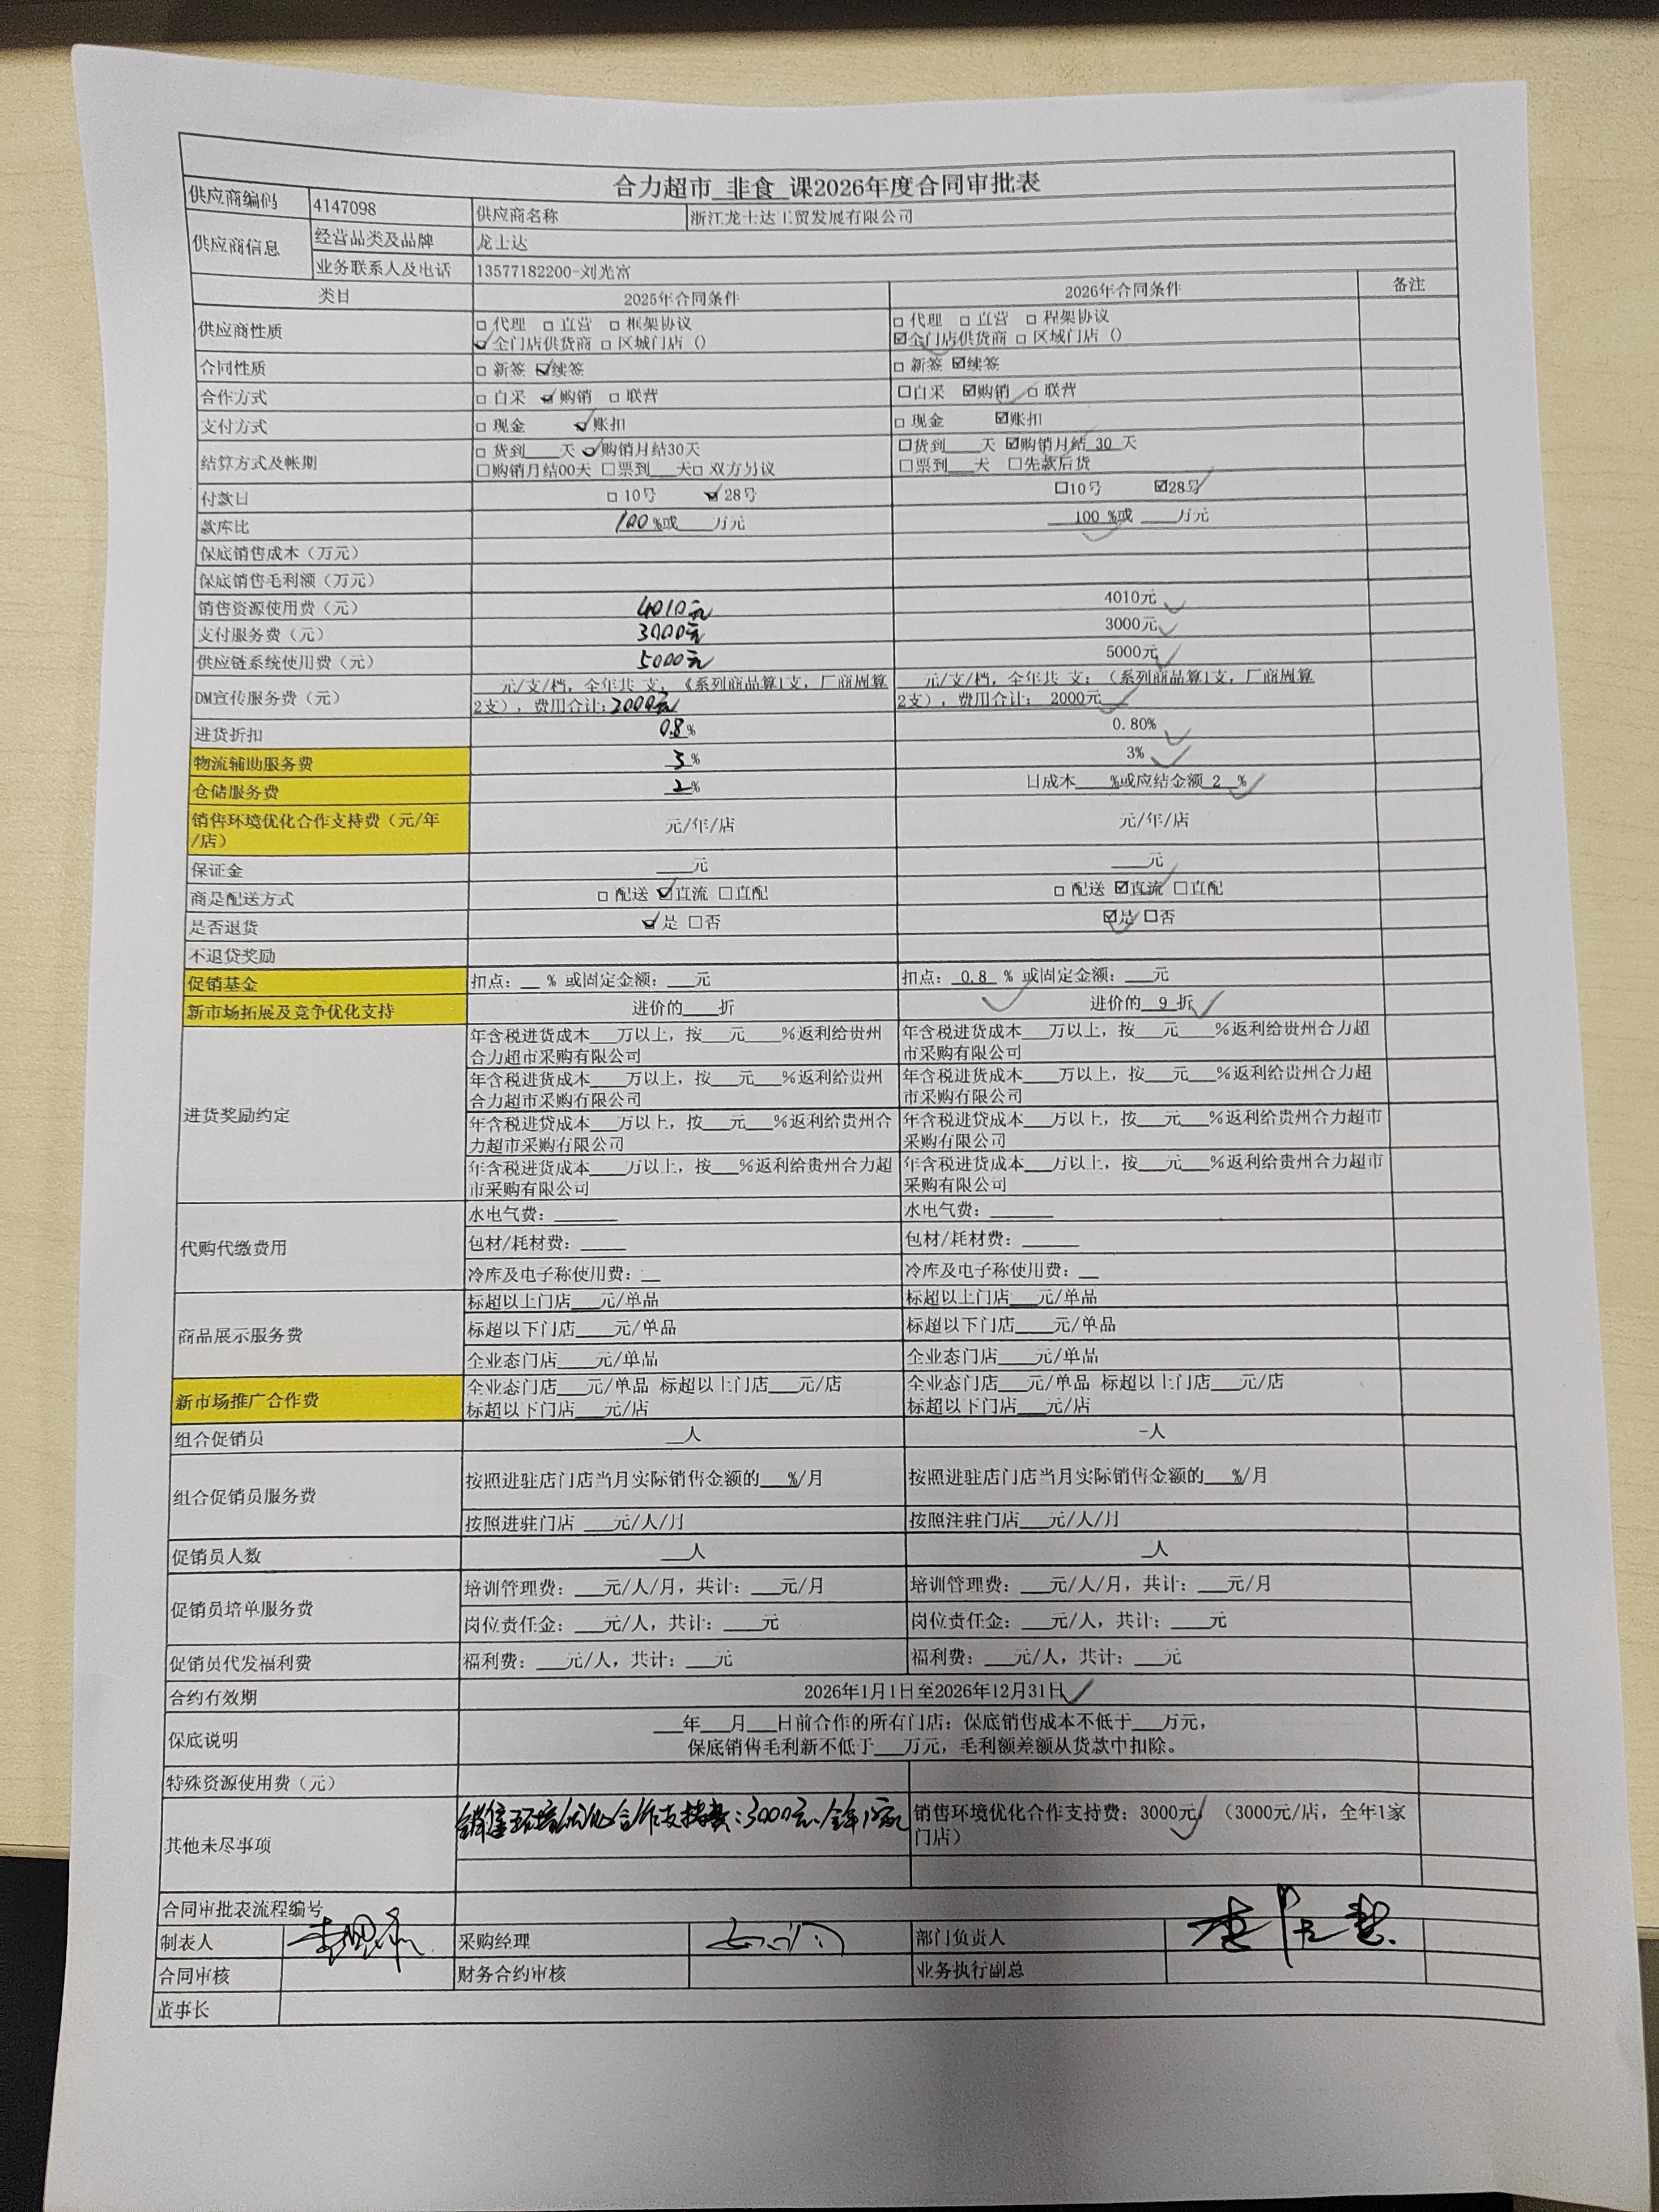 合力超市 非食 课2026年度合同审批表
供应商编码 4147098 供应商名称 浙江龙士达工贸发展有限公司
供应商信息 经营品类及品牌 龙士达
业务联系人及电话 13577182200-刘光富
类目 2025年合同条件 2026年合同条件 备注
供应商性质 □ 代理 □ 直营 □ 框架协议 □ 代理 □ 直营 □ 程架协议
☑全门店供货商 □ 区城门店（） ☑全门店供货商 □ 区域门店（）
合同性质 □ 新签 ☑续签 □ 新签 ☑续签
合作方式 □ 自采 ☑ 购销 □ 联营 □自采 ☑购销 □ 联营
支付方式 □ 现金 ☑账扣 □ 现金 ☑账扣
结算方式及帐期 □ 货到___天 ☑购销月结30天 □货到___天 ☑购销月结 30 天
□购销月结00天 □票到___天□ 双方另议 □票到___天 □先款后货
付款日 □ 10号 ☑ 28号 □10号 ☑28号
款库比 100 %或___万元 100 %或 ___万元
保底销售成本（万元）
保底销售毛利额（万元）
销售资源使用费（元） 4010元 4010元
支付服务费（元） 3000元 3000元
供应链系统使用费（元） 5000元 5000元
DM宣传服务费（元） ___元/支/档，全年共 支；《系列商品算1支，厂商周算 ___元/支/档，全年共 支；（系列商品算1支，厂商周算
2支），费用合计：2000元 2支），费用合计： 2000元
进货折扣 0.8% 0.80%
物流辅助服务费 3% 3%
仓储服务费 2% 日成本___%或应结金额 2 %
销售环境优化合作支持费（元/年 元/年/店 元/年/店
/店）
保证金 ___元 ___元
商是配送方式 □ 配送 ☑直流 □直配 □ 配送 ☑直流 □直配
是否退货 ☑是 □否 ☑是 □否
不退贷奖励
促销基金 扣点：__ % 或固定金额：___元 扣点： 0.8 % 或固定金额：___元
新市场拓展及竞争优化支持 进价的___折 进价的 9 折
进货奖励约定 年含税进货成本___万以上，按___元___%返利给贵州 年含税进货成本___万以上，按___元___%返利给贵州合力超
合力超市采购有限公司 市采购有限公司
年含税进货成本___万以上，按___元___%返利给贵州 年含税进货成本___万以上，按___元___%返利给贵州合力超
合力超市采购有限公司 市采购有限公司
年含税进贷成本___万以上，按___元___%返利给贵州合 年含税进贷成本___万以上，按___元___%返利给贵州合力超市
力超市采购有限公司 采购有限公司
年含税进货成本___万以上，按___%返利给贵州合力超 年含税进货成本___万以上，按___元___%返利给贵州合力超市
市采购有限公司 采购有限公司
代购代缴费用 水电气费：_____ 水电气费：_____
包材/耗材费：____ 包材/耗材费：_____
冷库及电子称使用费：__ 冷库及电子称使用费：__
商品展示服务费 标超以上门店___元/单品 标超以上门店___元/单品
标超以下门店___元/单品 标超以下门店___元/单品
全业态门店___元/单品 全业态门店___元/单品
新市场推广合作费 全业态门店___元/单品 标超以上门店___元/店 全业态门店___元/单品 标超以上门店___元/店
标超以下门店___元/店 标超以下门店___元/店
组合促销员 __人 -人
组合促销员服务费 按照进驻店门店当月实际销售金额的___%/月 按照进驻店门店当月实际销售金额的___%/月
按照进驻门店 ___元/人/月 按照注驻门店___元/人/月
促销员人数 ___人 _人
促销员培单服务费 培训管理费：___元/人/月，共计：___元/月 培训管理费：___元/人/月，共计：___元/月
岗位责任金：___元/人，共计：___元 岗位责任金：___元/人，共计：___元
促销员代发福利费 福利费：___元/人，共计：___元 福利费：___元/人，共计：___元
合约有效期 2026年1月1日至2026年12月31日
保底说明 ___年___月___日前合作的所有门店；保底销售成本不低于___万元，
保底销售毛利新不低于___万元，毛利额差额从货款中扣除。
特殊资源使用费（元）
其他未尽事项 销售环境优化合作支持费：3000元、全年1家 销售环境优化合作支持费：3000元 （3000元/店，全年1家
门店）
合同审批表流程编号
制表人 采购经理 部门负责人
合同审核 财务合约审核 业务执行副总
董事长